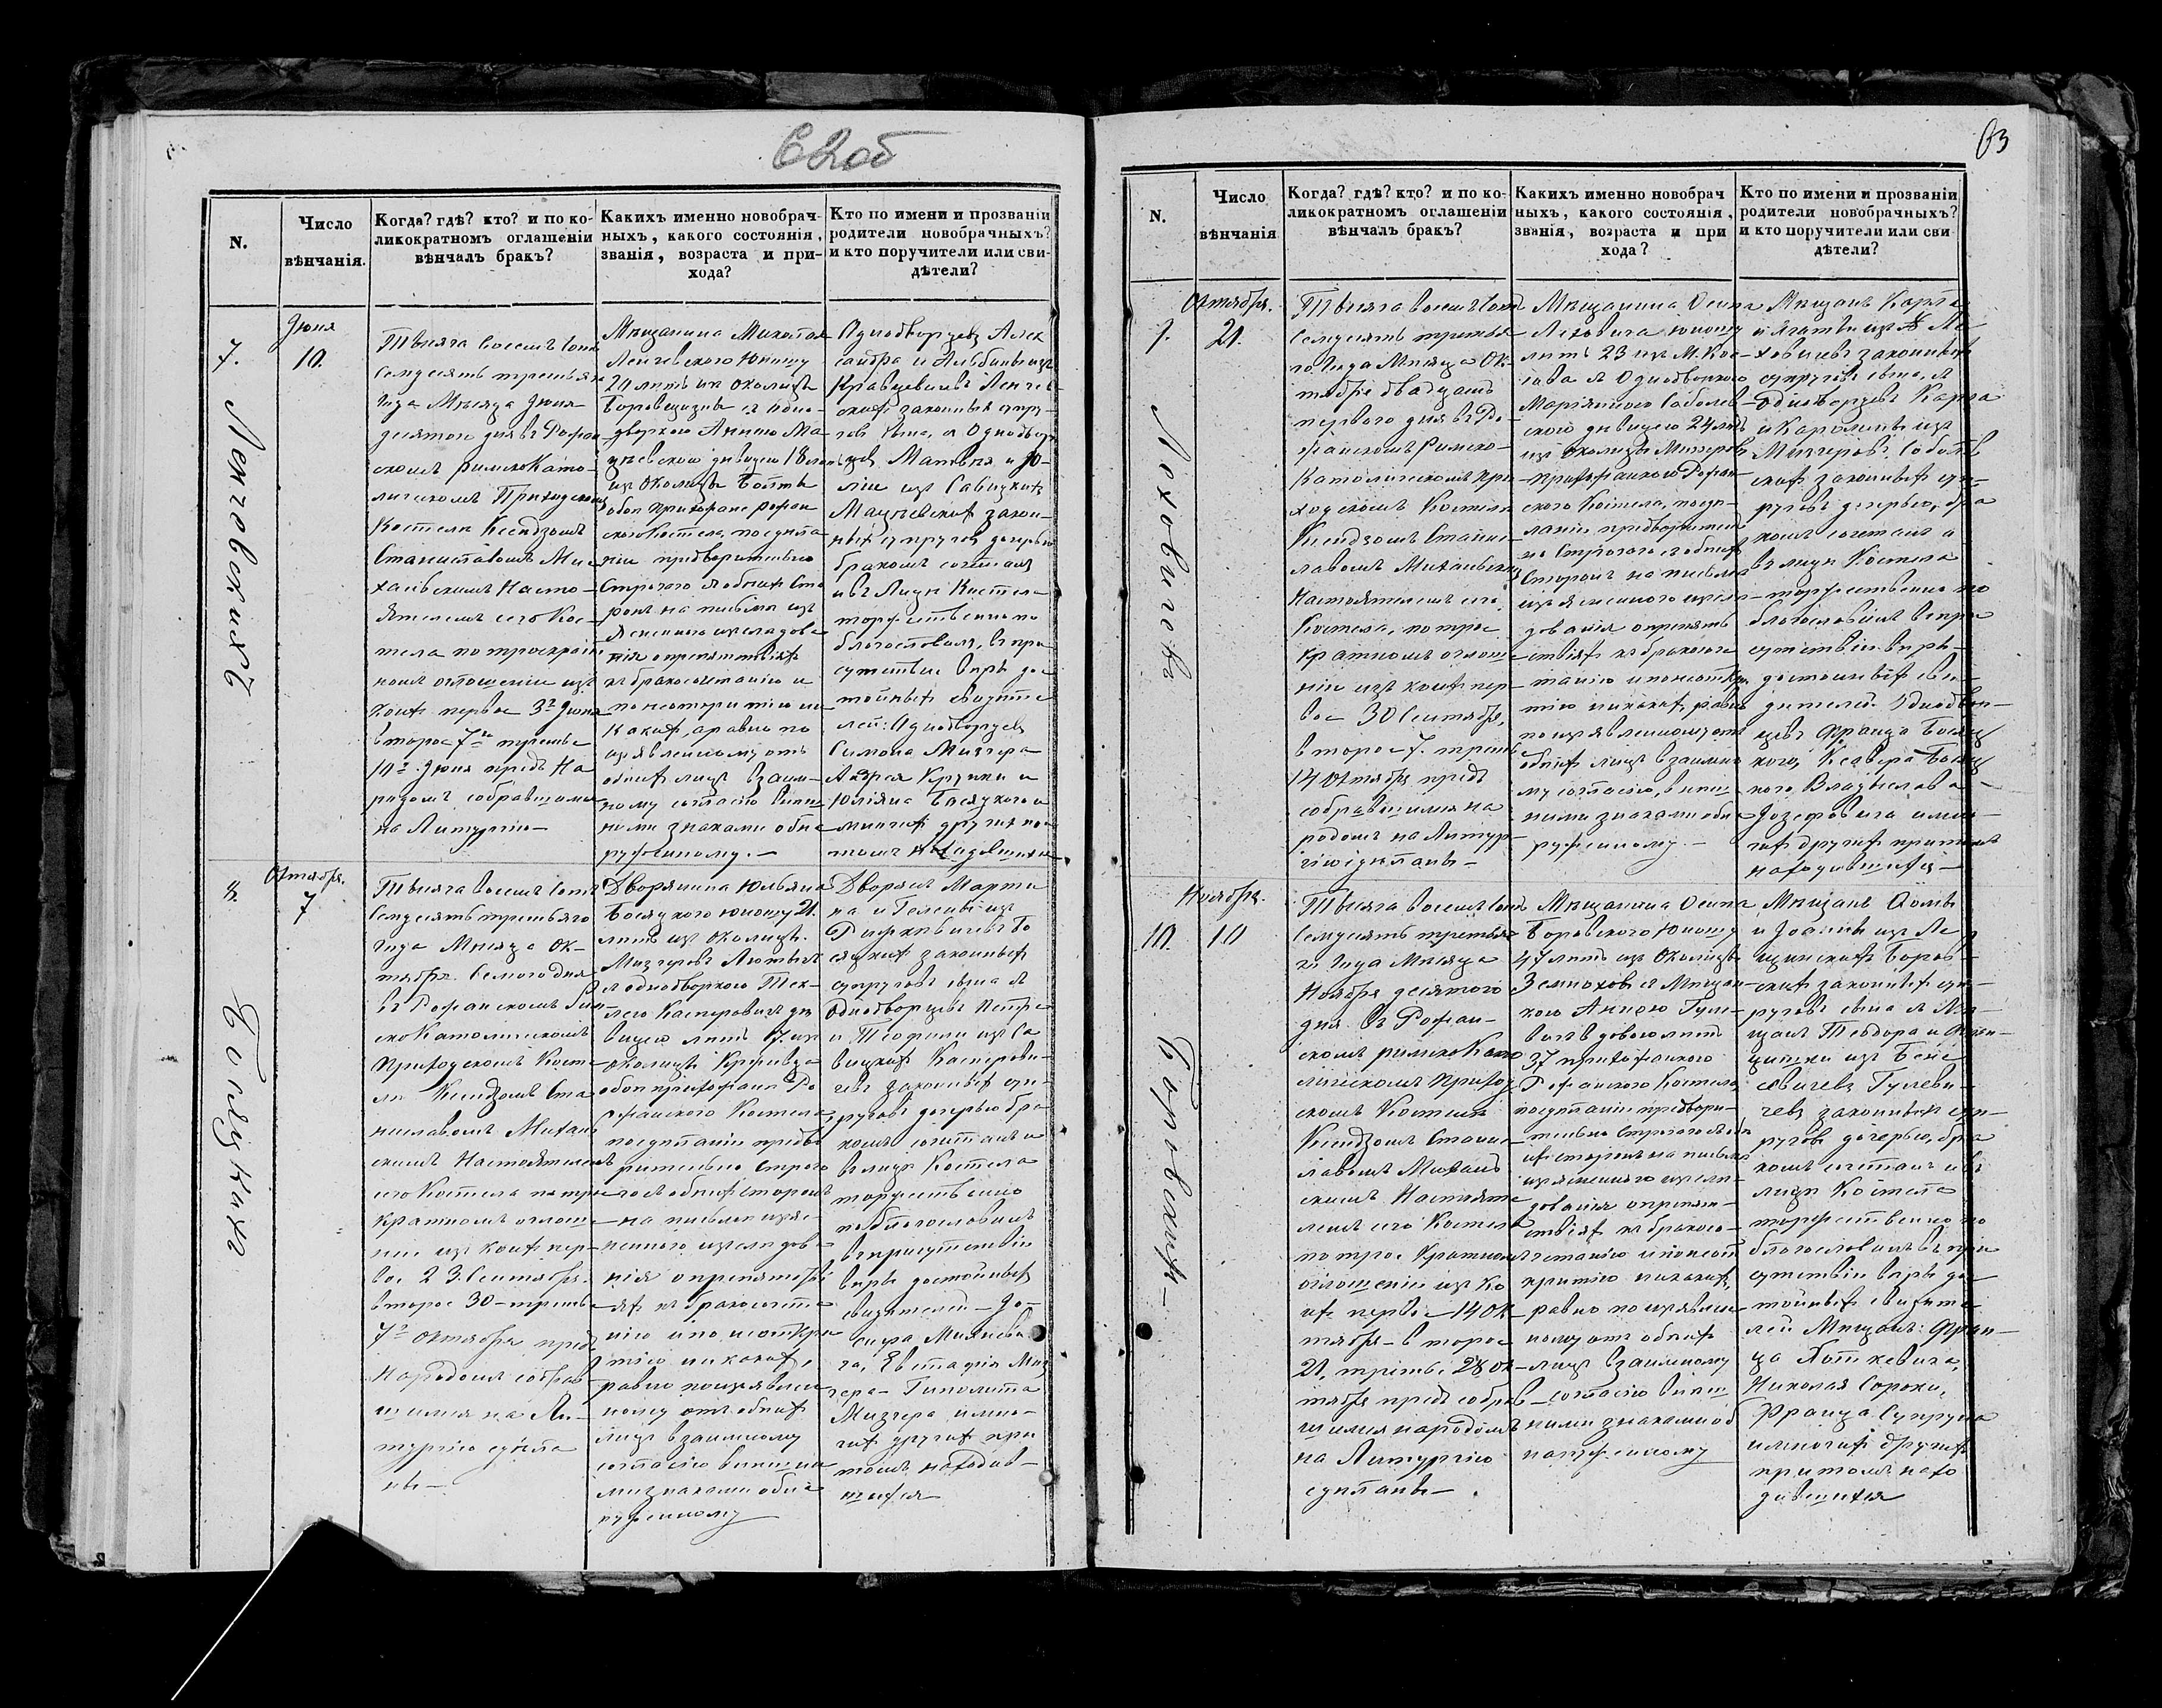 62об
N.
Число
вѣнчанія.
Когда? гдѣ? кто? и по ко-
ликократномъ оглашеніи
вѣнчалъ бракъ?
Какихъ именно новобрач-
ныхъ, какого состоянія,
званія, возраста и при-
хода?
Кто по имени и прозванію
родители новобрачныхъ?
и кто поручители или сви-
дѣтели?
7.
Ленчевскихъ
Іюня
10.
Тысяча восемь сотъ
семдесятъ третьяго
года Мѣсяца Іюня
десятого дня въ Рожан
скомъ римско Като-
лическомъ Приходскомъ
Костеле Ксендзомъ
Станиславомъ Ми-
хаевскимъ Насто-
ятелемъ сего Кос-
тела по троекрат
номъ оглашеніи изъ
коихъ первое 3го Іюня
второе 7го третье
10го Іюня предъ На
родомъ собравшимся
на Литургію —
Мѣщанина Михаила
Ленчевского юношу
20 лѣтъ изъ околицы
Боровщизны съ одно-
дворкою Анною Ма
цѣевскою дѣвицею 18 лѣтъ
изъ Околицы
обоп прихожане Рожан
ского Костела, по сдѣла
ніи предварительно
строгого съ обѣихъ сто
ронъ на письмѣ изъ
ясненного изслѣдова
нія о препятствіяхъ
къ бракосочетанію и
по неоткрытію ни
какихъ, а равно по
изъявленному отъ
обѣихъ лицъ взаим-
ному согласію внѣш
ними знаками обна
руженному. —
Однодворцевъ Алек
сандра и Альбины изъ
Кравцевичовъ Ленчев
скихъ законныхъ супру-
говъ сына, съ Однодвор
цевъ Матвѣя и Ю-
ліи изъ Савицкихъ
Мацѣевскихъ закон-
ныхъ супруговъ дочерью
бракомъ сочеталъ
и въ Лицѣ Костела
торжественно по
благословилъ, въ при
сутствіи вѣрѣ до
стойныхъ свидѣте
лей: Однодворцевъ
Симона Мизгера
Андрея Крупки и
Юліяна Босяцкого и
многихъ другихъ при
томъ находившихся
8.
Босяцкихъ
Октября.
7
Тысяча восемь сотъ
семдесятъ третьяго
года Мѣсяца Ок-
тября Семого дня
въ Рожанскомъ Рим-
ско Католическомъ
Приходскомъ Косте-
ле Ксендзомъ Ста
ниславомъ Михаев
скимъ Настоятелемъ
сего Костела по трое
кратномъ оглаше
ніи изъ коихъ пер-
вое 23 Сентября.
второе 30 — третье
7го Октября предъ
Народомъ собрав
шимся на Ли-
тургію сдѣла
ны —
Дворянина Юльяна
Босяцкого юношу 21.
лѣтъ изъ околицы
Мизгеровъ
съ однодворкою Тек-
лею Касперовичъ дѣ
вицею лѣтъ 17. изъ
околицы
обоп прихожане Ро
жанского Костела
по сдѣланіи предва
рительно строго
го съ обѣихъ сторонъ
на письмѣ изъяс-
ненного изслѣдов-
нія о препятстві
яхъ къ бракосочета
нію и по неоткры
тію никакихъ,
равно по изъявлен
ному отъ обѣихъ
лицъ взаимному
согласію внѣшни
ми знаками обна
руженному
Дворянъ Марти
на и Гелены изъ
Бо
сяцкихъ законныхъ
супруговъ сына съ
Однодворцевъ Петра
и Теофили изъ Са
вицкихъ Касперови-
чевъ законныхъ су-
пруговъ дочерью бра
комъ сочеталъ и
въ лицѣ Костела
торжественно
поблагословилъ
въ присутствіи
вѣрѣ достойныхъ
свидѣтелей — Іо-
сифа
ча, Евстафія Миз
гера — Гиполита
Мизгера и мно-
гихъ другихъ при
томъ находив-
шихся
63
N.
Число
вѣнчанія
Когда? гдѣ? кто? и по ко-
ликократномъ оглашеніи
вѣнчалъ бракъ?
Какихъ именно новобрач
ныхъ, какого состоянія,
званія, возраста и при
хода?
Кто по имени и прозваніи
родители новобрачныхъ?
и кто поручители или сви
дѣтели?
9.
Лоховичовъ
Октября.
21.
Тысяча восемь сотъ
семдесятъ третья
го года Мѣсяца Ок-
тября двадцать
первого дня въ Ро-
жанскомъ Римско-
Католическомъ При
ходскомъ Костеле
Ксендзомъ Станис
лавомъ Михаевскимъ
Настоятелемъ сего
Костела, по трое
кратномъ оглаше
ніи изъ коихъ пер-
вое 30 Сентября,
второе 7. третье
14 Октября предъ
собравшимся на
родомъ на Литур-
гію сдѣланы —
Мѣщанина Осипа
Лоховича юношу
лѣтъ 23 изъ М. Кос-
сова съ Однодворкою
Маріянною Соболев-
ской дѣвицею 24 лѣтъ
изъ околицы Мизгеровъ
прихожанкою Рожан-
ского Костела, по сдѣ-
ланіи предварительно
строгого съ обѣихъ
сторонъ на письмѣ
изъясненного изслѣ
дованія о препят
ствіяхъ къ бракосоче
танію и по неоткры
тію никакихъ, равно
по изъявленному отъ
обѣихъ лицъ взаимно
му согласію, внѣш
ними знаками обна
руженному. —
Мѣщанъ Карла
и Агаты изъ
Лоховичовъ законныхъ
супруговъ сына, съ
Однодворцевъ Карла
и Каролины изъ
Мизгеровъ Соболев
скихъ законныхъ су-
пруговъ дочерью, бра
комъ сочеталъ и
въ лицѣ Костела
торжественно по
благословилъ въ при
сутствіи вѣрѣ
достойныхъ сви-
дѣтелей: Однодвор-
цевъ Франца Босяц
кого, Ксавера Босяц
кого Владислава
Іозефовича и мно-
гихъ другихъ притомъ
находившихся —
10.
Боровскихъ —
Ноября.
10
Тысяча восемь сотъ
семдесятъ третья
го года Мѣсяца
Ноября десятого
дня въ Рожан-
скомъ римско Като
лическомъ приход
скомъ Костеле
Ксендзомъ Станис
лавомъ Михаев
скимъ Настояте
лемъ сего Костела
по трое кратномъ
оглашеніи изъ ко
ихъ первое 14 Ок
тября — второе
21, третье 28 Ок
тября предъ собрав
шимся народомъ
на Литургію
сдѣланы —
Мѣщанина Осипа
Боровского юношу
47 лѣтъ изъ околицы
съ Мѣщан
кою Анною Гуле-
вичъ вдовою лѣтъ
37 прихожанкою
Рожанского Костела,
по сдѣланіи предвари-
тельно строгого съ обѣ
ихъ сторонъ на письмѣ
изъясненного изслѣ-
дованія о препят-
ствіяхъ къ бракосо-
четанію и по неот
крытію никакихъ,
равно по изъявлен
ному отъ обѣихъ
лицъ взаимному
согласію внѣш
ними знаками об
наруженному
Мѣщанъ Адама
и Іоанны изъ
Боров-
скихъ законныхъ су-
пруговъ сына съ Мѣ-
щанъ Теодора и Фран-
цишки изъ
Гулеви-
чевъ законныхъ су-
пруговъ дочерью, бра
комъ сочеталъ и въ
лицѣ Костела
торжественно по
благословилъ въ при
сутствіи вѣрѣ до
стойныхъ свидѣте
лей Мѣщанъ: Фран-
ца
Николая Сороки,
Франца Супруна
и многихъ другихъ
притомъ нахо
дившихся